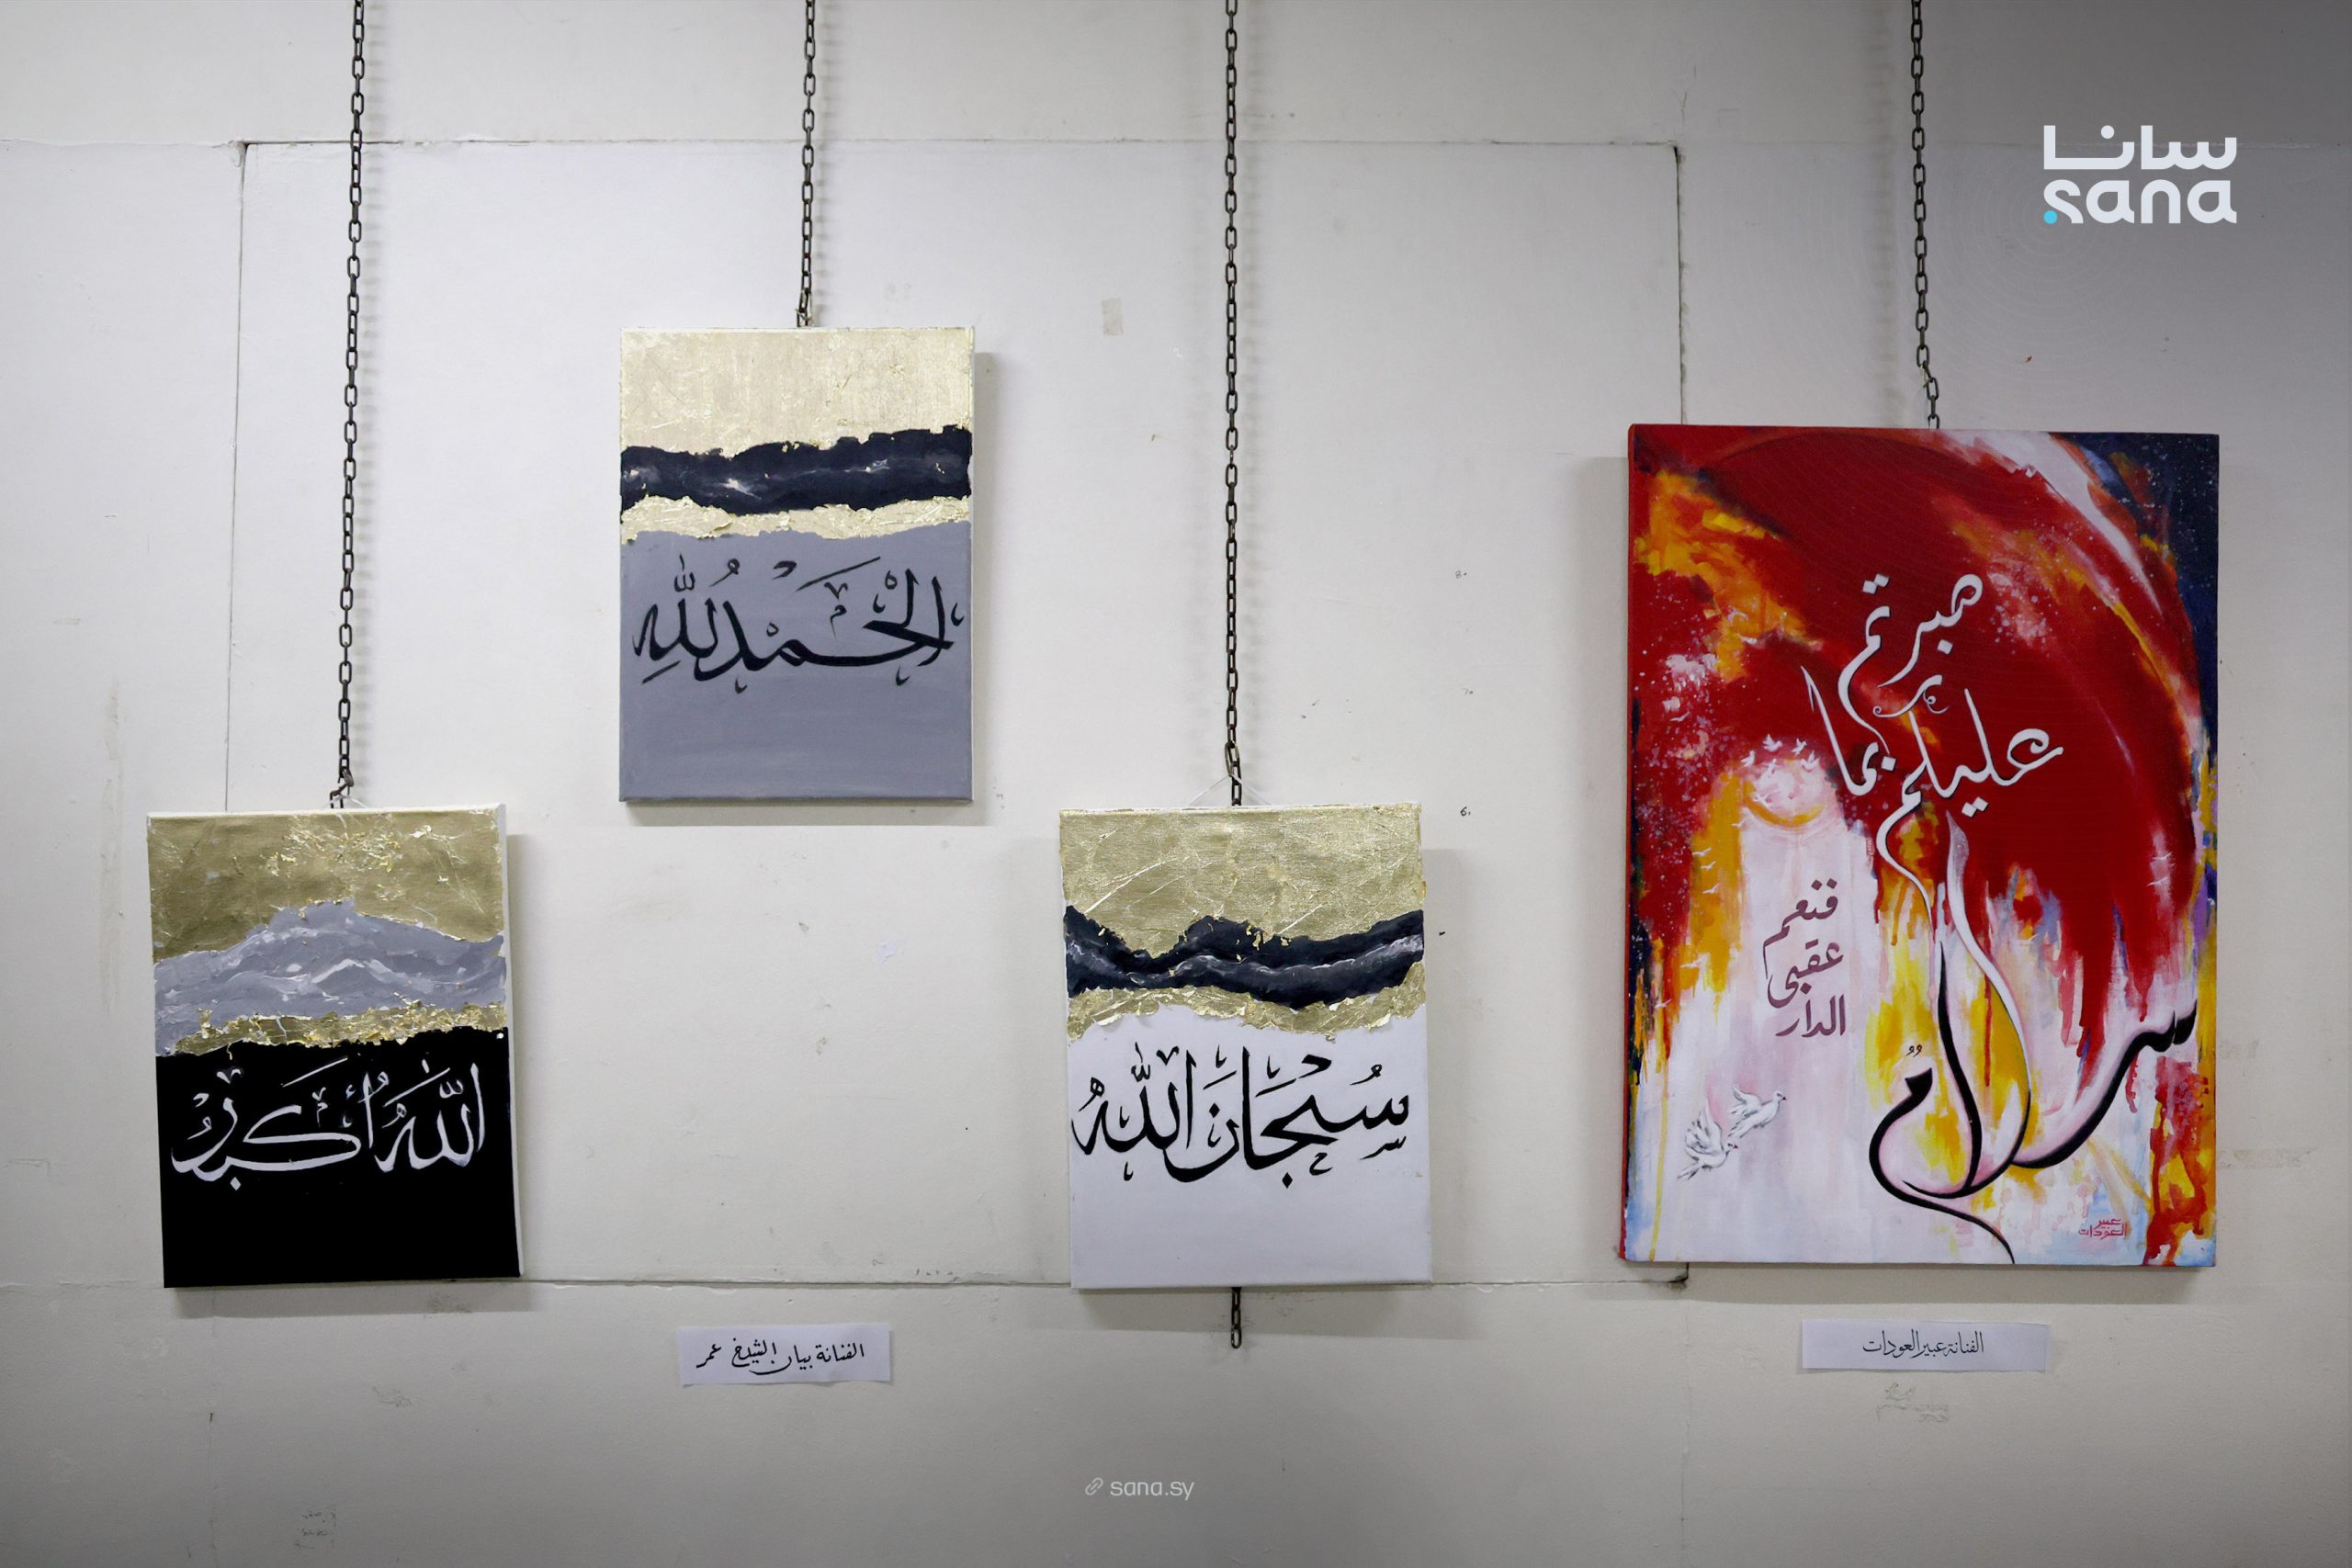 سانا
sana
الْحَمْدُ لِلَّهِ
اللهُ أَكبر
سُبْحَانَ اللهُ
صبرتم
عليكم بما
سلامٌ
فنعم
عقبى
الدار
عبير
العودات
الفنانة بيان الشيخ عمر
الفنانة عبير العودات
sana.sy